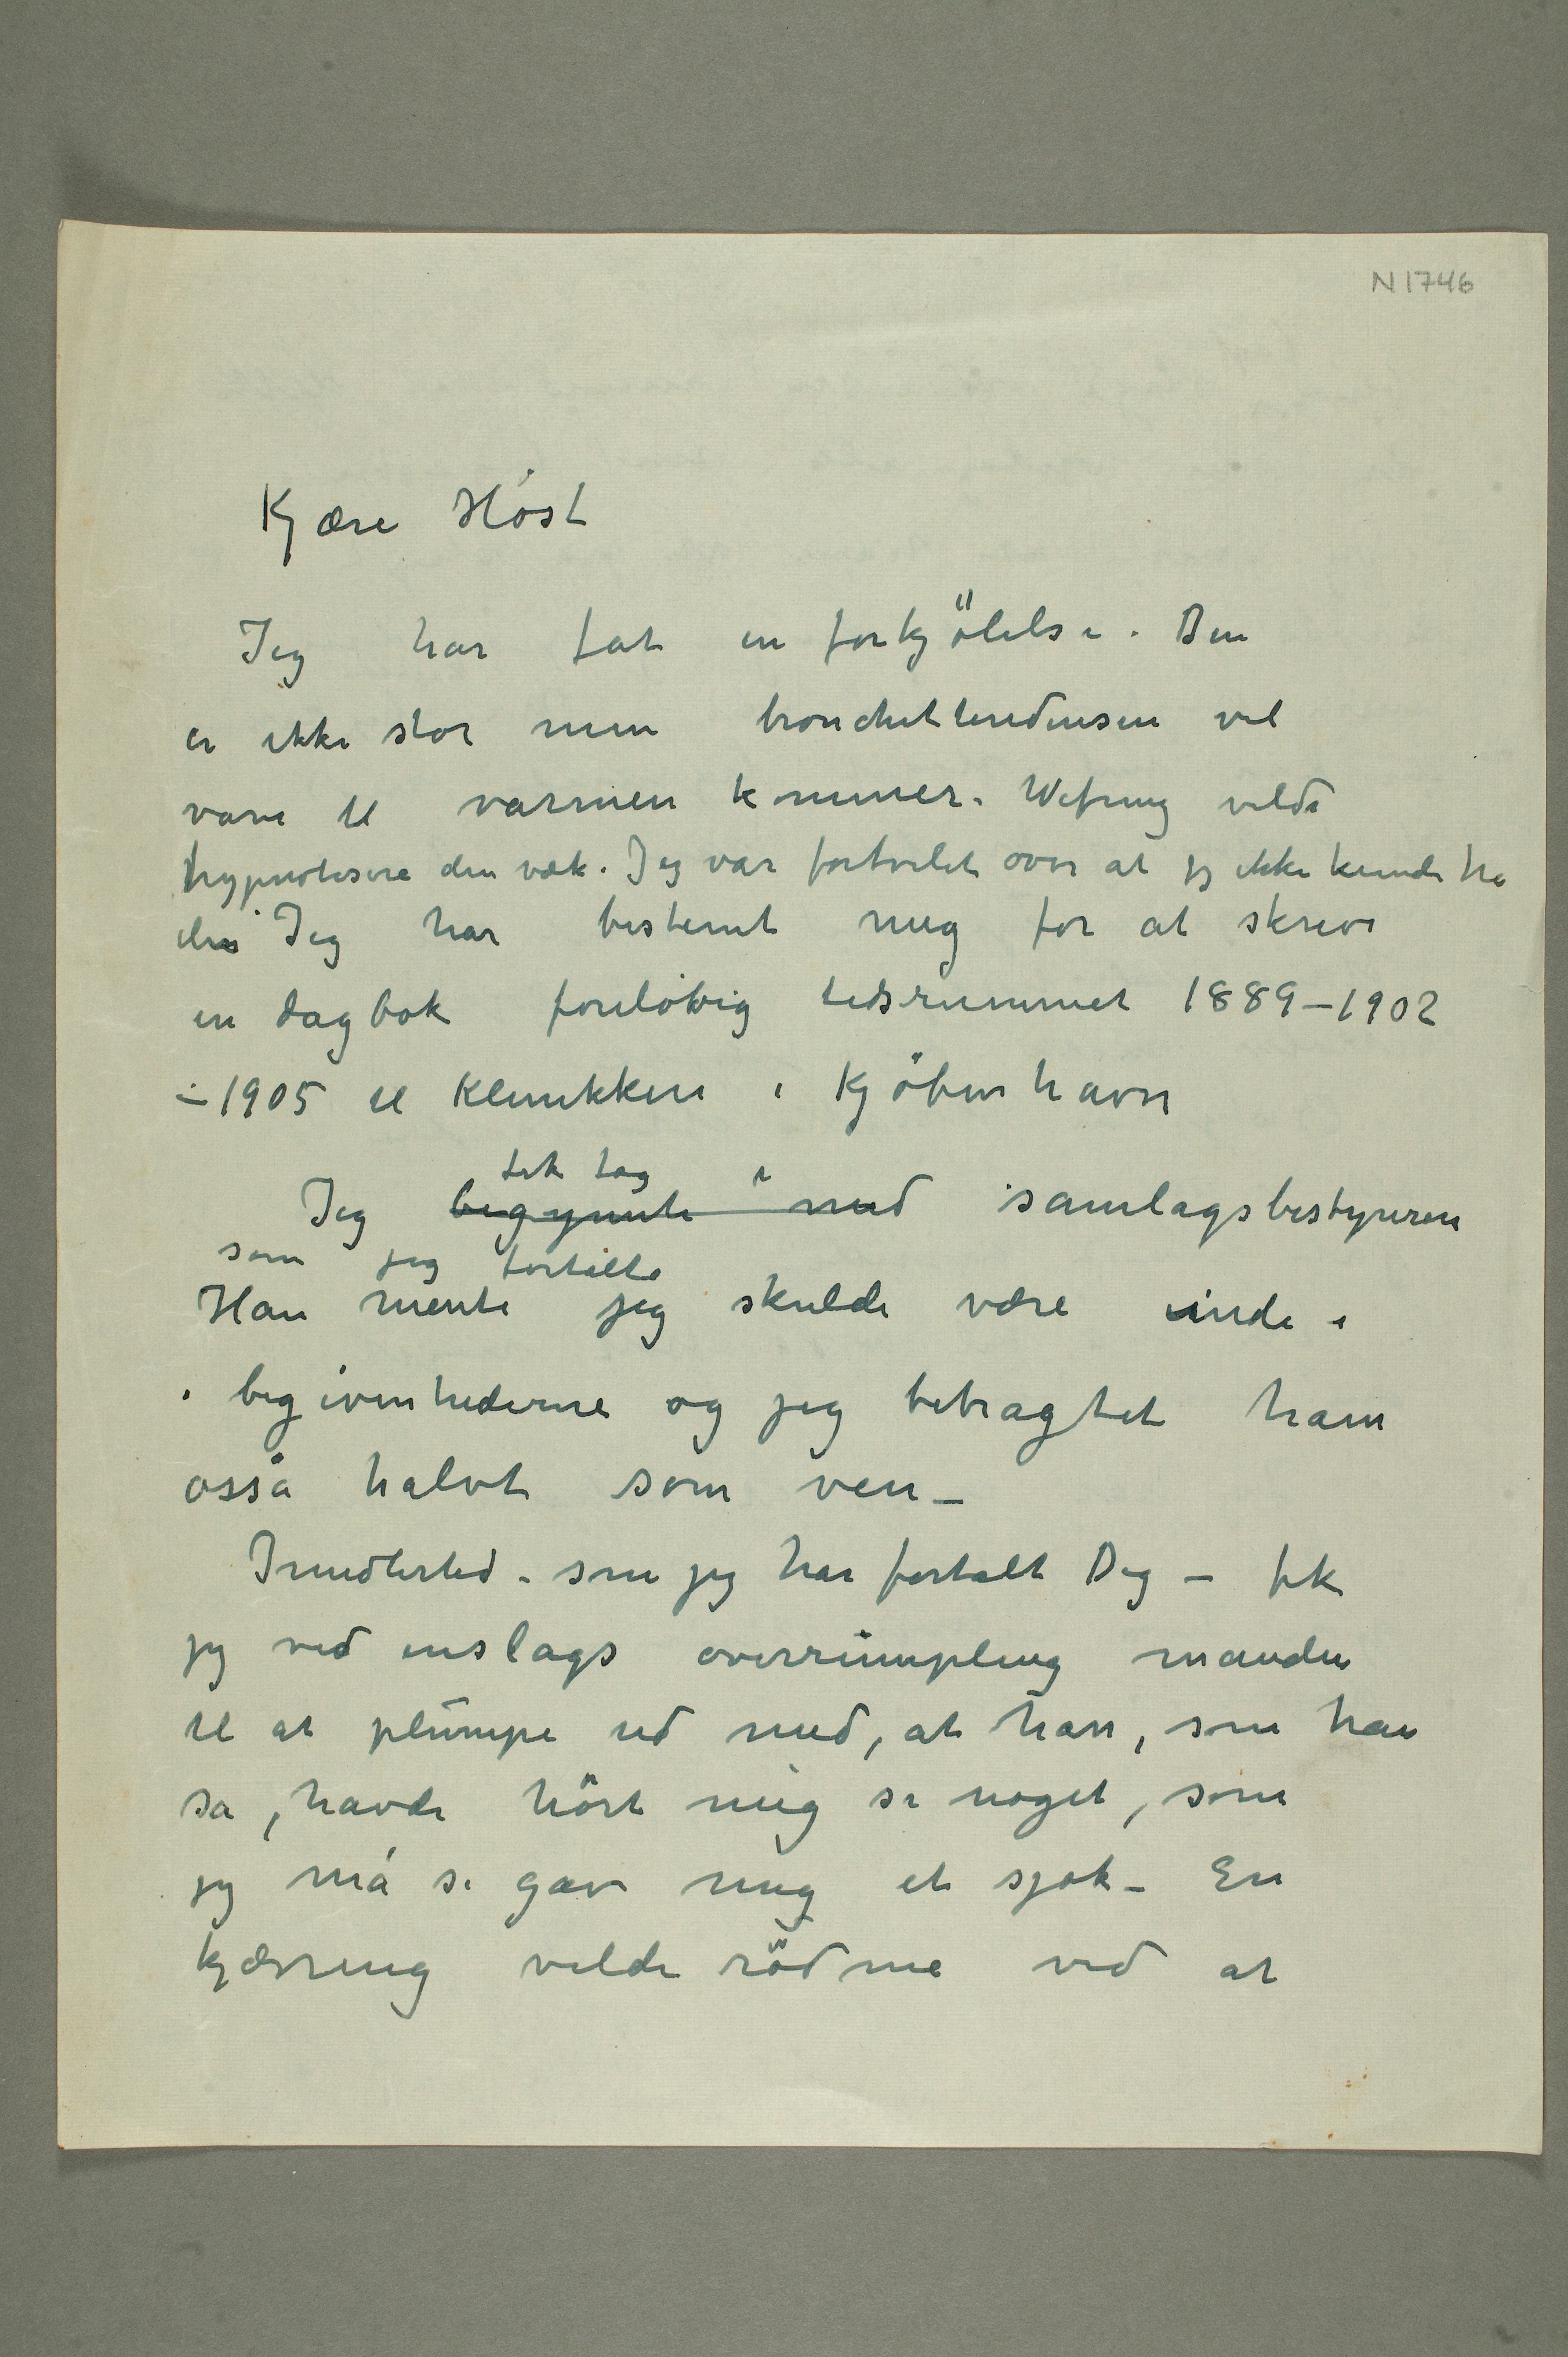 N 1746
Kjære Høst
Jeg har fåt en forkjölelse. Den
er ikke stor men bronchittendensen vil
vare til varmen kommer. Wefring vilde
hypnotisere den væk. Jeg var fortvilet over at jeg ikke kunde ha
den Jeg har bestemt mig for at skrive
en dagbok foreløbig tidsrummet 1889–1902
–1905 til Klinikken i Kjøbenhavn
fik tag i
Jeg begynnte med samlagsbestyreren
som jeg fortalte
Han mente jeg skulde være inde i
i begivenhederne og jeg betragtet ham
osså halvt som ven –
Imidlertid – som jeg har fortalt Dig – fik
jeg ved enslags overrumpling manden
til at plumpe ud med, at han, som han
sa, havde hört mig si noget, som
jeg må si gav mig et sjok – En
kjærring vilde rödme ved at